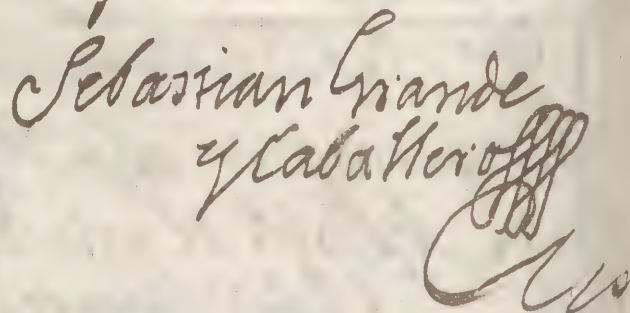 Sebastian Grande
y Caballero